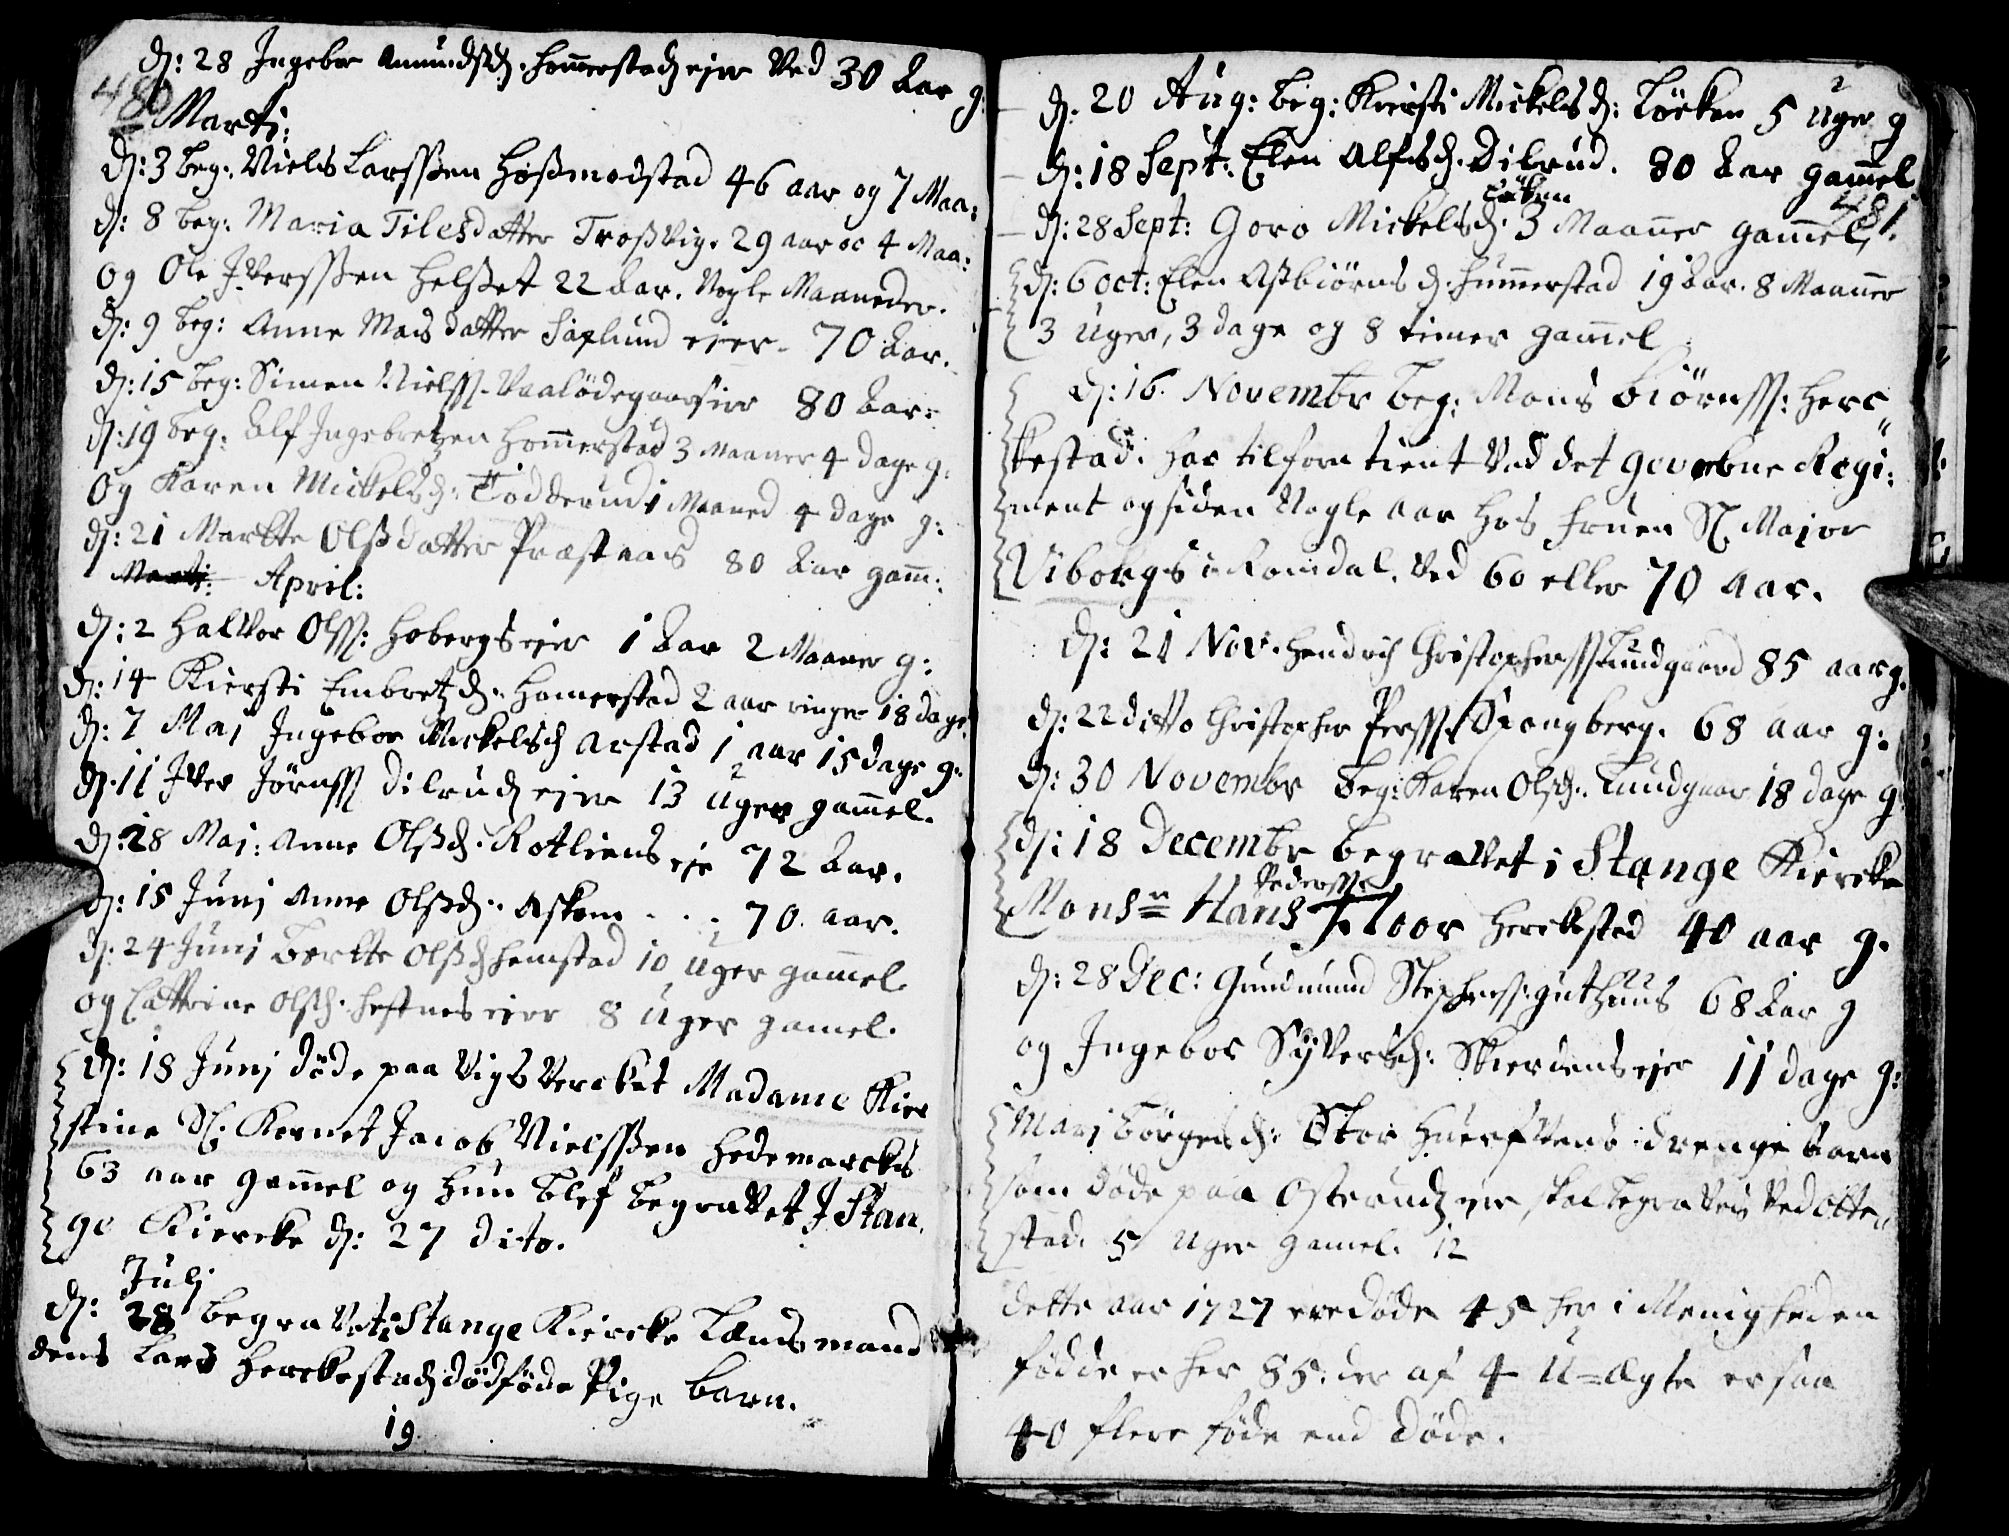 480
d: 28 Ingebor Amundsd: Hommerstad ejer Ved 30 Aar g:
Martj:
d: 3 beg: Niels Larsßen Hoßmodstad 46 aar og 7 Maa:
d: 8 beg: Maria Tilesdatter Troßvig. 29 aar oc 4 Maa:
og Ole Iversßen Helset 22 Aar. Nogle Maaneder.
d: 9 beg: Anne Madsdatter Saxlund ejer. 70 Aar.
d: 15 beg: Simen Nielsß. Vaalödegaardsejer 80 Aar:
d: 19 beg: Alf Ingebretzen Hommerstad 3 Maaner 4 dage g:
og Karen Mickelsd: Todderud 1 Maaned 4 dage g:
d: 21 Marthe Olßdatter Præstaars 80 Aar gam:
Martj: April:
d: 2 Halvor Olsß: Hobergsejer 1 Aar 2 Maaner g:
d: 14 Kiersti Embretzd: Hommerstad 2 aar ringer 18 dage
d: 7 Maj Ingebor Mickelsd Arstad 1 aar 15 dage g:
d: 11 Iver Jörnsß Dilrudejer 13 Uger gammel.
d: 28 Maj: Anne Olßd. Rotliens eje 72 Aar.
d: 15 Junj Anne Olßd. Askom . . . 70. aar.
d: 24 Junj Berthe Olßd hemstad 10 Uger gammel
og Cattrine Olsd. Hestnes ejer 8 Uger gamel.
d: 18 Junj döde paa Vigs Vercket Madame Kier
stine Sl: Kornet Jacob Nielsßen Hedemarckes
63 aar gammel og hun blef begravet J Stan,
ge Kiercke d: 27 dito.
Julj
d: 28 begravet i Stange Kiercke Lændsmand
dens Lars Herckestad dödföde Pige barn.
19
d: 20 Aug: beg: Kiersti Mickelsd: Löcken 5 Uger g
d: 18 Sept: Elen Alfsd. Dilrud. 80 Aar gammel
481.
Löken
d: 28 Sept: Goro Mickelsd: 3 Maaner gammel,
d: 6 Oct: Elen Aßbiörns d. Hummerstad 19 Aar. 8 Maaner
3 Uger, 3 dage og 8 timer gammel
d: 16. Novembr beg: Mons Biörnsß: Herc"
kestad. har tilforn tient Ved det gevorbne Regi:
ment og siden Nogle aar hos Fruen Sl. Major
Viborgs i Romdal. Ved 60 eller 70 aar.
d: 21 Nov. Hendrich Christophersß Lundgaard 85 aar g.
d: 22 ditto Christopher Persß. Spongberg. 68 aar g:
d: 30 Novembr beg: Karen Olsd. Lundgaar 18 dage g
d: 18 Decembr begravet i Stange Kiercke
Pedersß:
Monsr Hans Floor Herckstad 40 aar g.
d: 28 Dec: Gundmund Stephensß: Guthuus 68 Aar g
og Ingebor Syversd: Skierdensejer 11 dage g:
Marj Börgesd: Stor Huerfvens drenge barn
som döde paa Osterudejer skal begraves Ved Otte,,
stad. 5 Uger gamel. 12
dette aar 1727 ere döde 45 her i Menigheden
födde er her 85: der af 4 U=Ægte er saa
40 flere föde end döde.